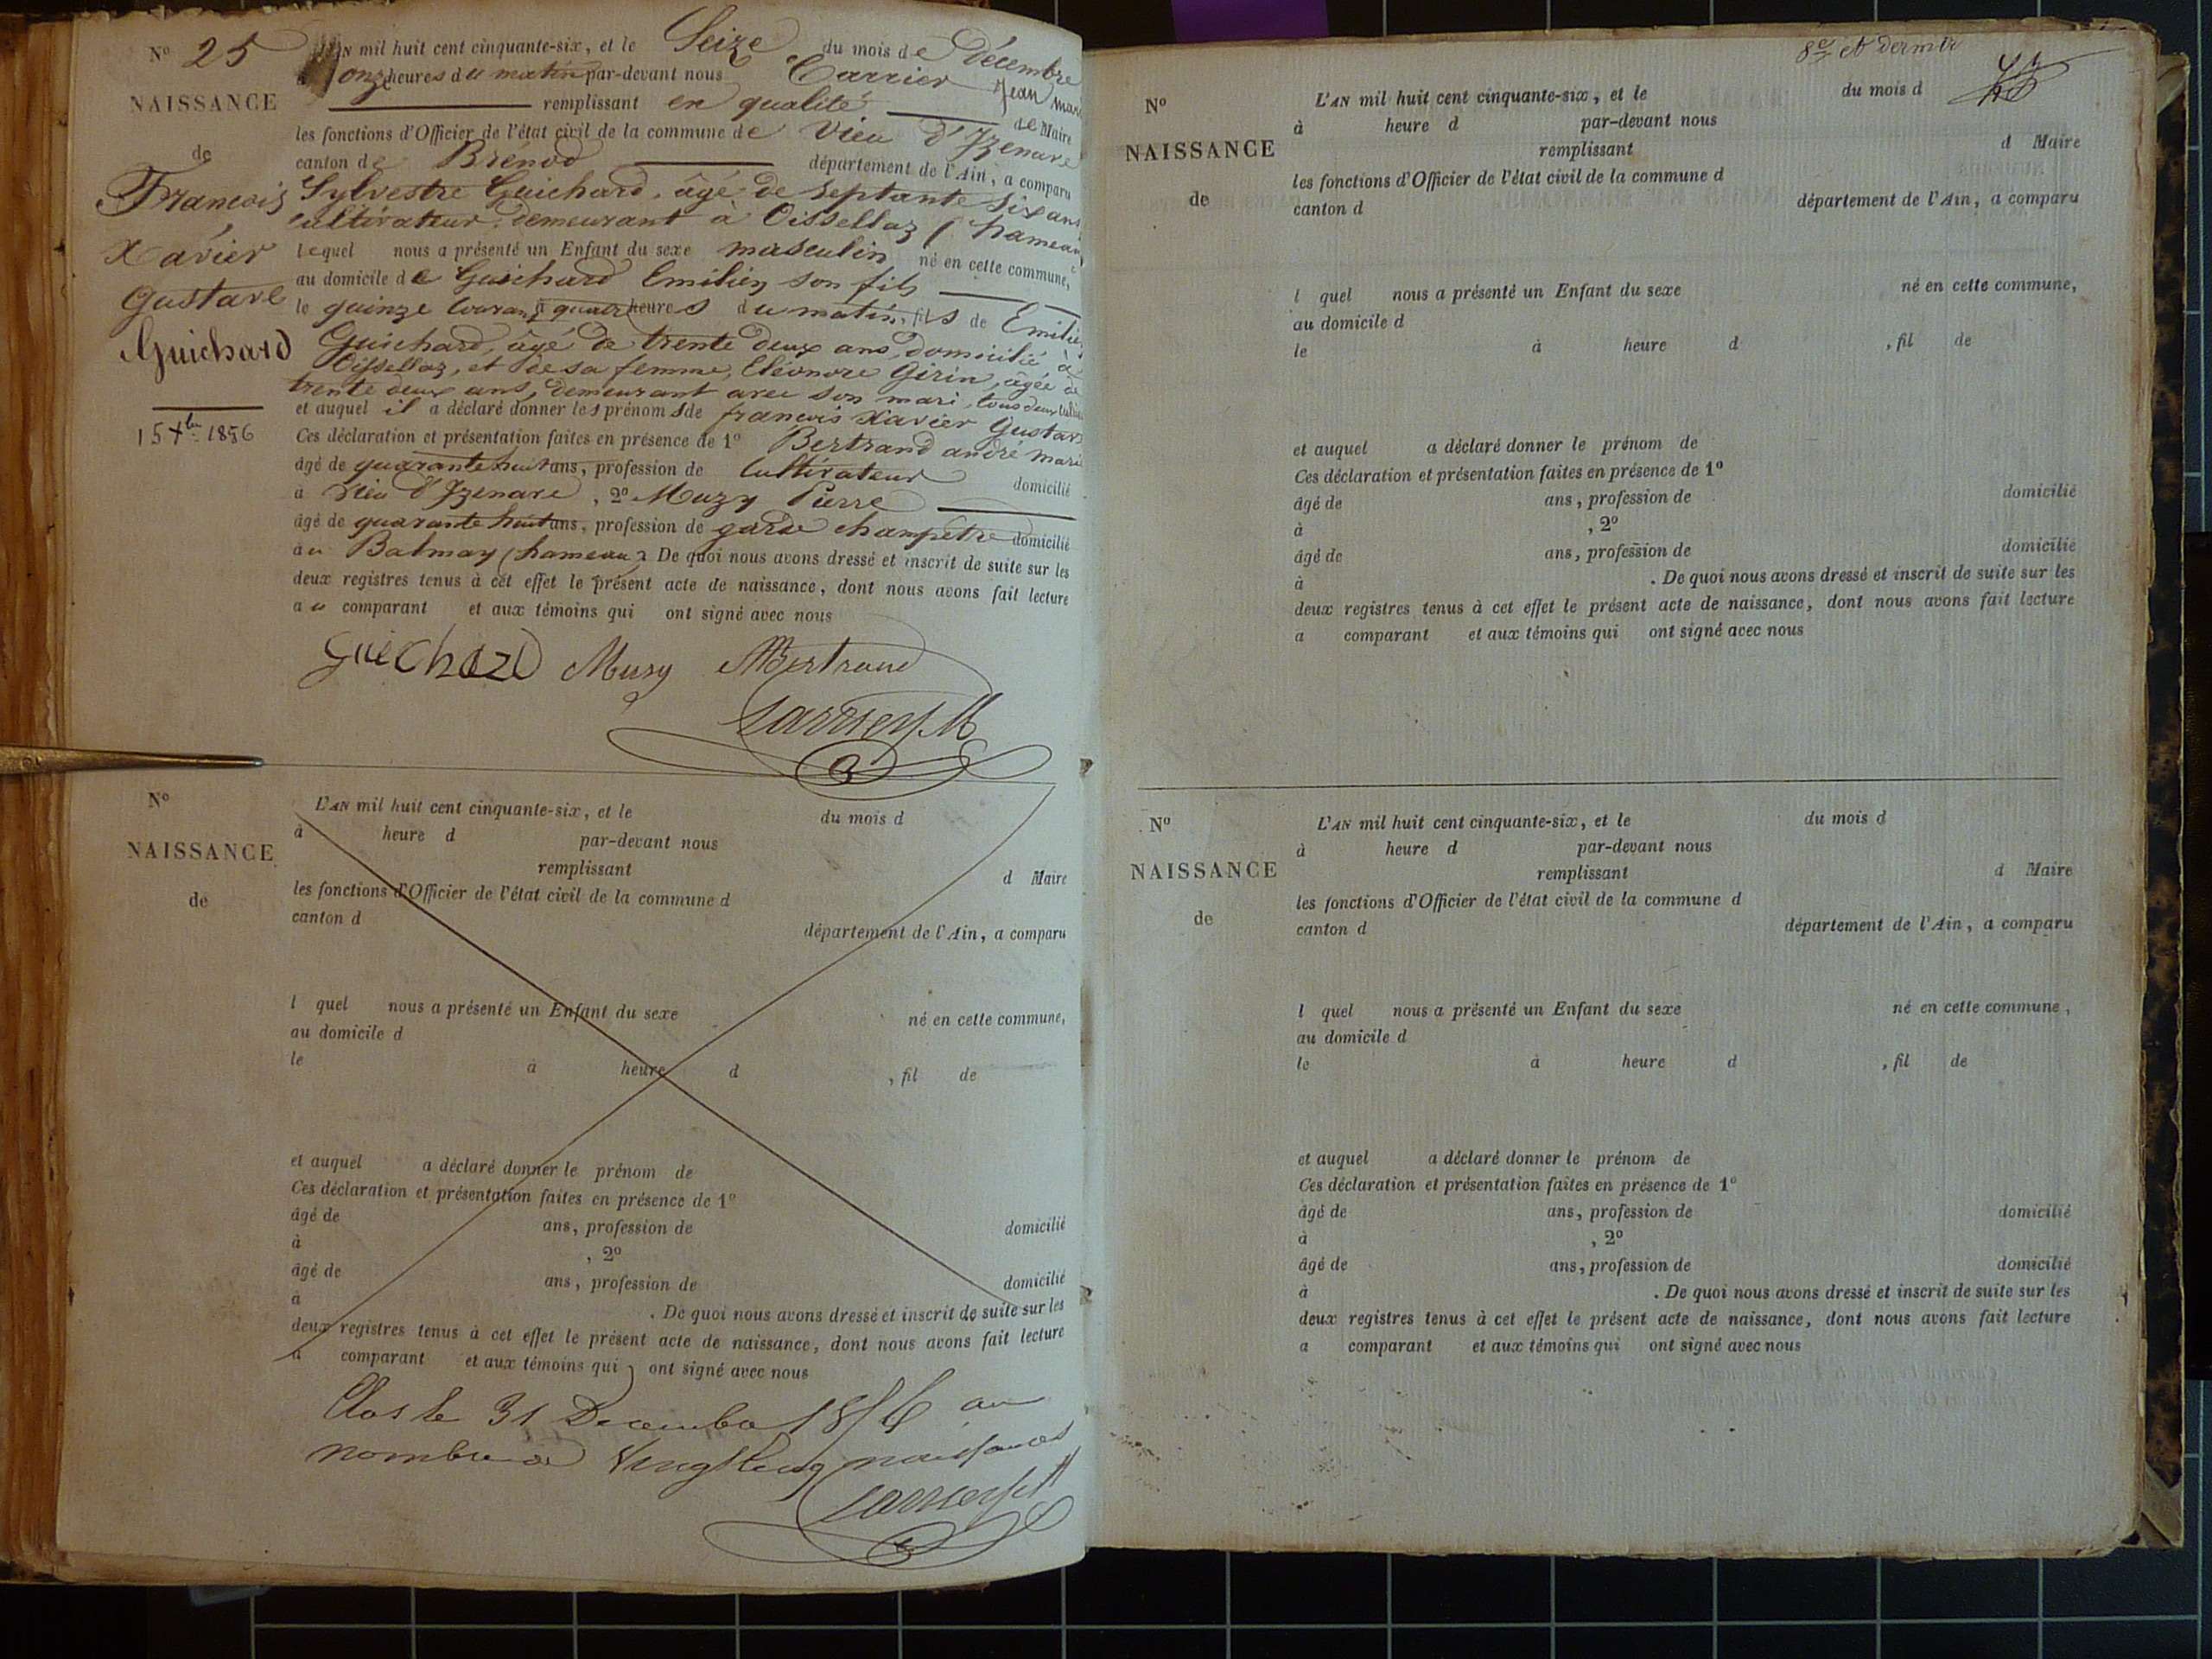 Nº 25
L'AN mil huit cent cinquante-six, et le Seize du mois de Décembre
à onze heures du matin par-devant nous Carrier Jean Marie
NAISSANCE
remplissant en qualité de Maire
les fonctions d'Officier de l'état civil de la commune de Vieu d'Izenave
de
canton de Brénod département de l'Ain, a comparu
François
Sylvestre Guichard, âgé de septante six ans
cultivateur, demeurant à Oissellaz (hameau)
Xavier
lequel nous a présenté un Enfant du sexe masculin né en cette commune,
au domicile de Guichard Emilien son fils
Gustave
le quinze courant à quatre heures du matin, fils de Emilien
Guichard
Guichard, âgé de trente deux ans, domicilié à
Oissellaz, et de sa femme, Eléonore Girin, âgée de
trente deux ans, demeurant avec son mari, tous deux
et auquel il a déclaré donner les prénoms de françois Xavier Gustave
15 Xbre 1856
Ces déclaration et présentation faites en présence de 1º Bertrand andré marie
âgé de quarante huit ans, profession de Cultivateur domicilié
à Vieu d'Izenave, 2º Muzy Pierre
âgé de quarante huit ans, profession de garde champêtre domicilié
au Balmay (hameau). De quoi nous avons dressé et inscrit de suite sur les
deux registres tenus à cet effet le présent acte de naissance, dont nous avons fait lecture
au comparant et aux témoins qui ont signé avec nous
Guichard Muzy Bertrand
Carrier J M
Nº
L'AN mil huit cent cinquante-six, et le du mois d
à heure d par-devant nous
NAISSANCE
remplissant d Maire
les fonctions d'Officier de l'état civil de la commune d
de
canton d département de l'Ain, a comparu
l quel nous a présenté un Enfant du sexe né en cette commune,
au domicile d
le à heure d , fil de
et auquel a déclaré donner le prénom de
Ces déclaration et présentation faites en présence de 1º
âgé de ans, profession de domicilié
à , 2º
âgé de ans, profession de domicilié
à . De quoi nous avons dressé et inscrit de suite sur les
deux registres tenus à cet effet le présent acte de naissance, dont nous avons fait lecture
a comparant et aux témoins qui ont signé avec nous
Clos le 31 Decembre 1856 au
nombre de Vingt cinq naissances
Carrier J M
8e et dernier
Nº
L'AN mil huit cent cinquante-six, et le du mois d
à heure d par-devant nous
NAISSANCE
remplissant d Maire
les fonctions d'Officier de l'état civil de la commune d
de
canton d département de l'Ain, a comparu
l quel nous a présenté un Enfant du sexe né en cette commune,
au domicile d
le à heure d , fil de
et auquel a déclaré donner le prénom de
Ces déclaration et présentation faites en présence de 1º
âgé de ans, profession de domicilié
à , 2º
âgé de ans, profession de domicilié
à . De quoi nous avons dressé et inscrit de suite sur les
deux registres tenus à cet effet le présent acte de naissance, dont nous avons fait lecture
a comparant et aux témoins qui ont signé avec nous
Nº
L'AN mil huit cent cinquante-six, et le du mois d
à heure d par-devant nous
NAISSANCE
remplissant d Maire
les fonctions d'Officier de l'état civil de la commune d
de
canton d département de l'Ain, a comparu
l quel nous a présenté un Enfant du sexe né en cette commune,
au domicile d
le à heure d , fil de
et auquel a déclaré donner le prénom de
Ces déclaration et présentation faites en présence de 1º
âgé de ans, profession de domicilié
à , 2º
âgé de ans, profession de domicilié
à . De quoi nous avons dressé et inscrit de suite sur les
deux registres tenus à cet effet le présent acte de naissance, dont nous avons fait lecture
a comparant et aux témoins qui ont signé avec nous